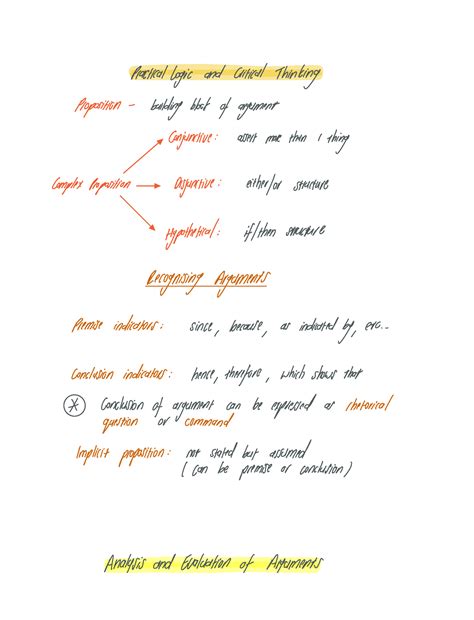 Practical Logic and Critical Thinking
Proposition - building block of argument
Conjunctive: assert more than 1 thing
Complex Proposition
Disjunctive: either/or structure
Hypothetical: if/then structure
Recognising Arguments
Premise indicators: since, because, as indicated by, etc..
Conclusion indicators: hence, therefore, which shows that
* Conclusion of argument can be expressed as rhetorical
question or command
Implicit proposition: not stated but assumed
(can be premise or conclusion)
Analysis and Evaluation of Arguments